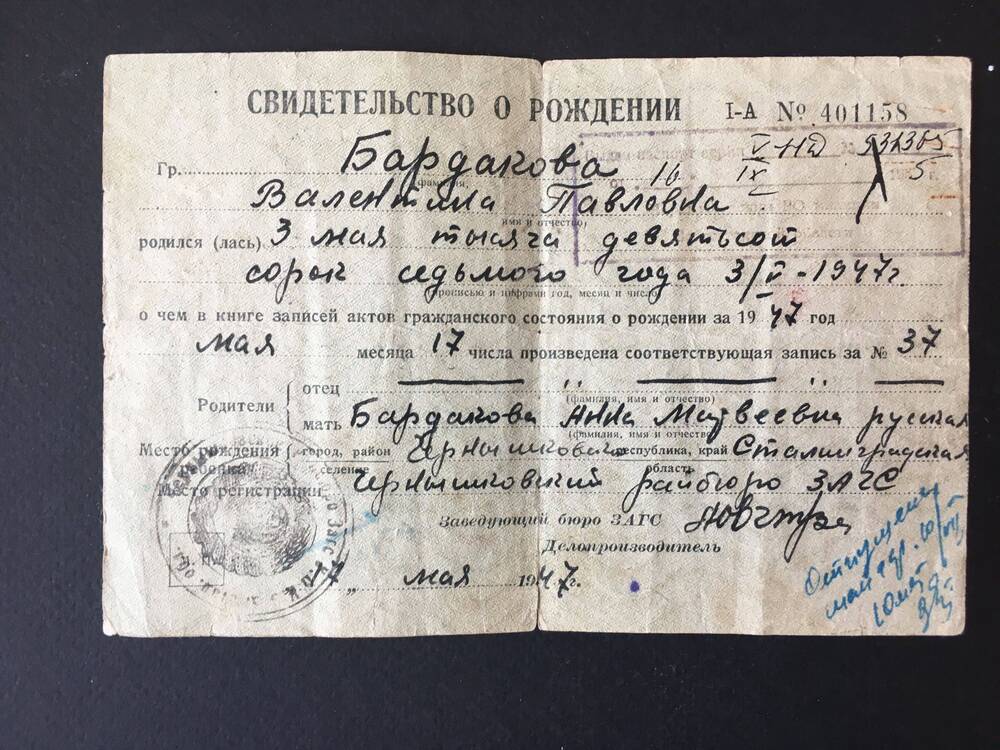 СВИДЕТЕЛЬСТВО О РОЖДЕНИИ I-А № 401158
Гр. Бардакова
V-НД 531365
16 IX 5
фамилия,
Валентина Павловна
имя и отчество
родился (лась) 3 мая тысяча девятьсот
сорок седьмого года 3/V-1947г.
прописью и цифрами год, месяц и число
о чем в книге записей актов гражданского состояния о рождении за 1947 год
мая месяца 17 числа произведена соответствующая запись за № 37
Родители
отец
(фамилия, имя и отчество)
мать Бардакова Анна Матвеевна русская
(фамилия, имя и отчество)
Место рождения ребенка город, район Чернышковский республика, край Сталинградская
селение область
Место регистрации Чернышковский райбюро ЗАГС
Заведующий бюро ЗАГС
Делопроизводитель
17 " мая 1947г.